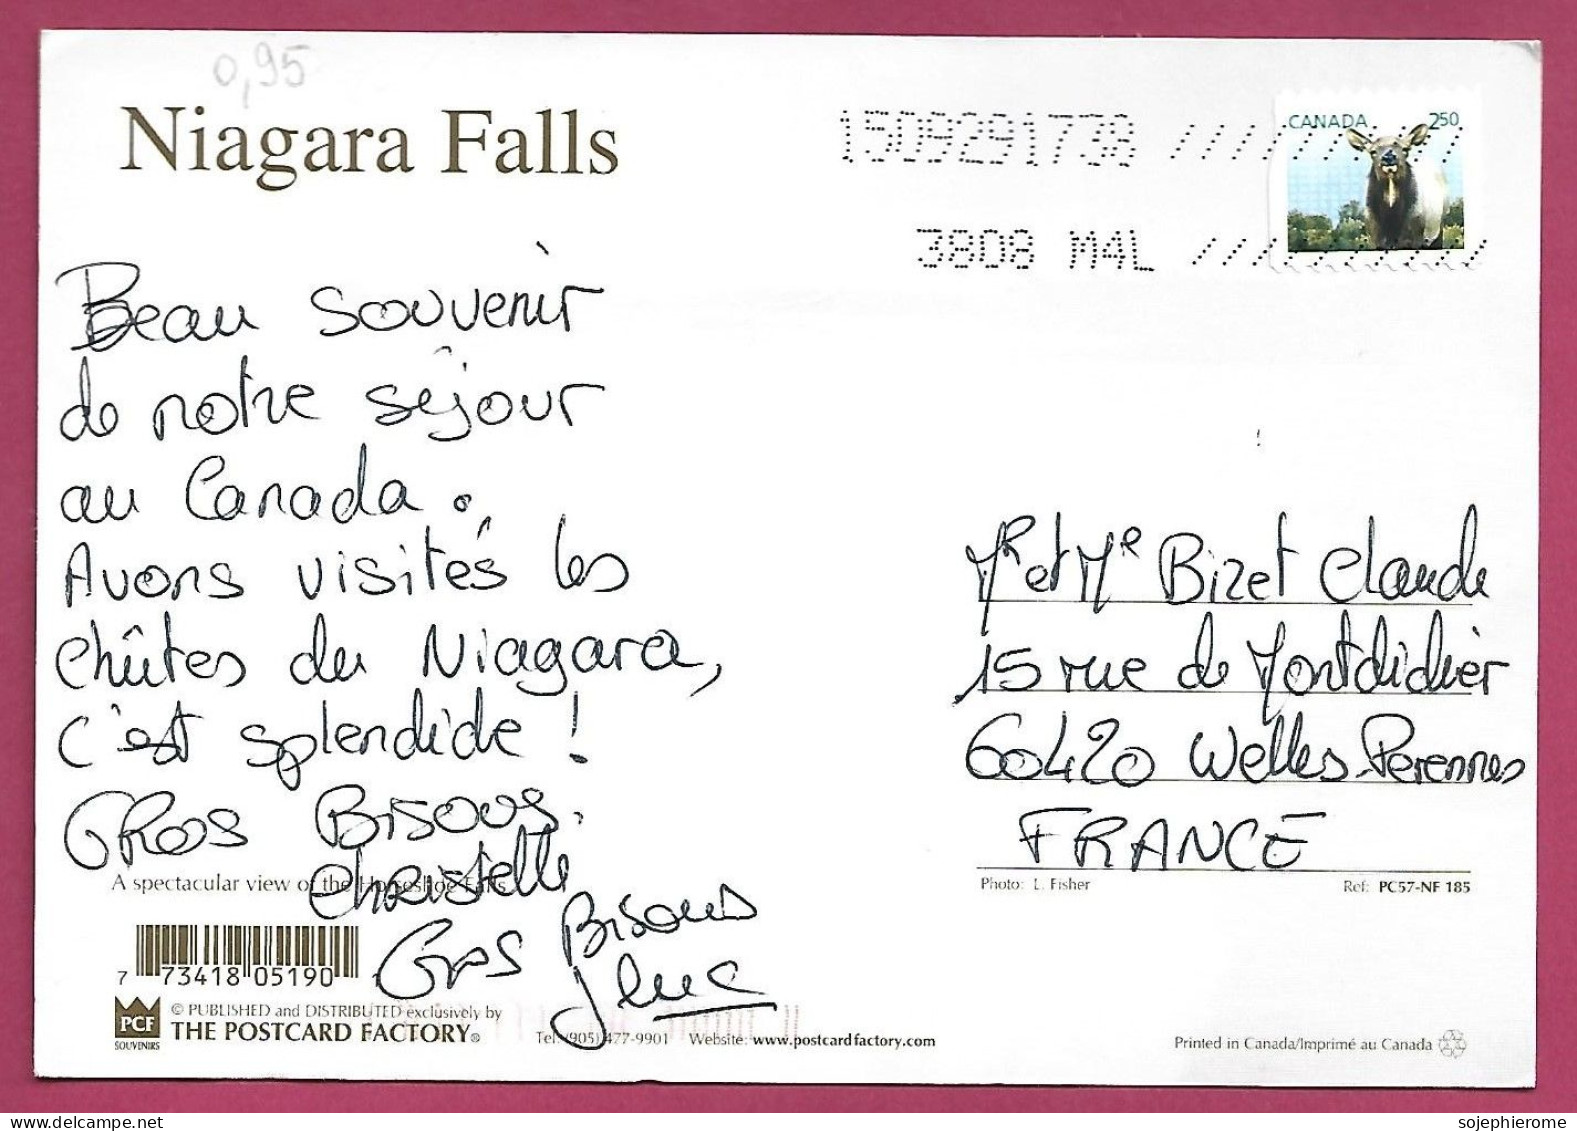 0,95
Niagara Falls
1509291738
CANADA 250
3808 M4L
Beau souvenir
de notre séjour
au Canada.
Avons visités les
chûtes du Niagara,
c'est splendide !
GROS BISOUS.
Christelle
Gros Bisous
J Luc
Mr et Me Bizet Claude
15 rue de Montdidier
60420 Welles Perennes
FRANCE
A spectacular view of the Horseshoe Falls
Photo: L. Fisher
Ref: PC57-NF 185
7 73418 05190
PCF
SOUVENIRS
© PUBLISHED and DISTRIBUTED exclusively by
THE POSTCARD FACTORY®
Tel: (905) 477-9901 Website: www.postcardfactory.com
Printed in Canada/Imprimé au Canada
www.delcampe.net
sojephierome